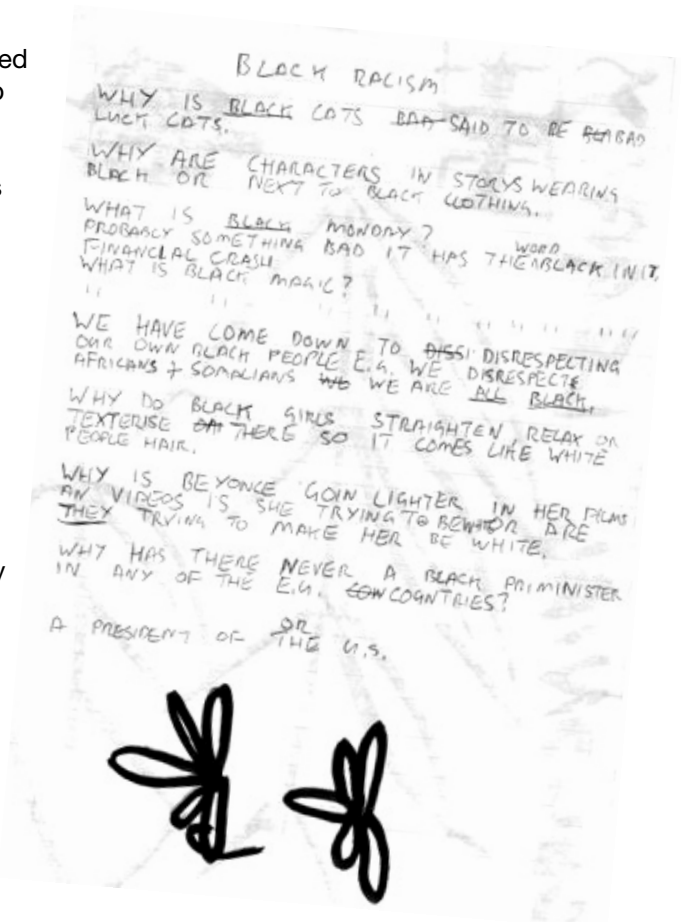 ed
o
s
y
BLACK RACISM
WHY IS BLACK CATS BAA SAID TO BE BLA BAD
LUCK CATS.
WHY ARE CHARACTERS IN STORYS WEARING
BLACK OR NEXT TO BLACK CLOTHING.
WHAT IS BLACK MONDAY?
PROBABLY SOMETHING BAD IT HAS THE WORD BLACK IN IT,
FINANCIAL CRASH
WHAT IS BLACK MAGIC?
" " " " " " " " "
WE HAVE COME DOWN TO DISSI DISRESPECTING
OUR OWN BLACK PEOPLE E.G. WE DISRESPECTE
AFRICANS + SOMALIANS WE WE ARE ALL BLACK.
WHY DO BLACK GIRLS STRAIGHTEN, RELAX OR
TEXTERISE THERE SO IT COMES LIKE WHITE
PEOPLE HAIR.
WHY IS BEYONCE GOIN LIGHTER IN HER FILMS
AN VIDEOS IS SHE TRYING TO BE OR ARE
THEY TRYING TO MAKE HER BE WHITE.
WHY HAS THERE NEVER A BLACK PRIMINISTER
IN ANY OF THE E.G. COW COUNTRIES?
OR
A PRESIDENT OF THE U.S.